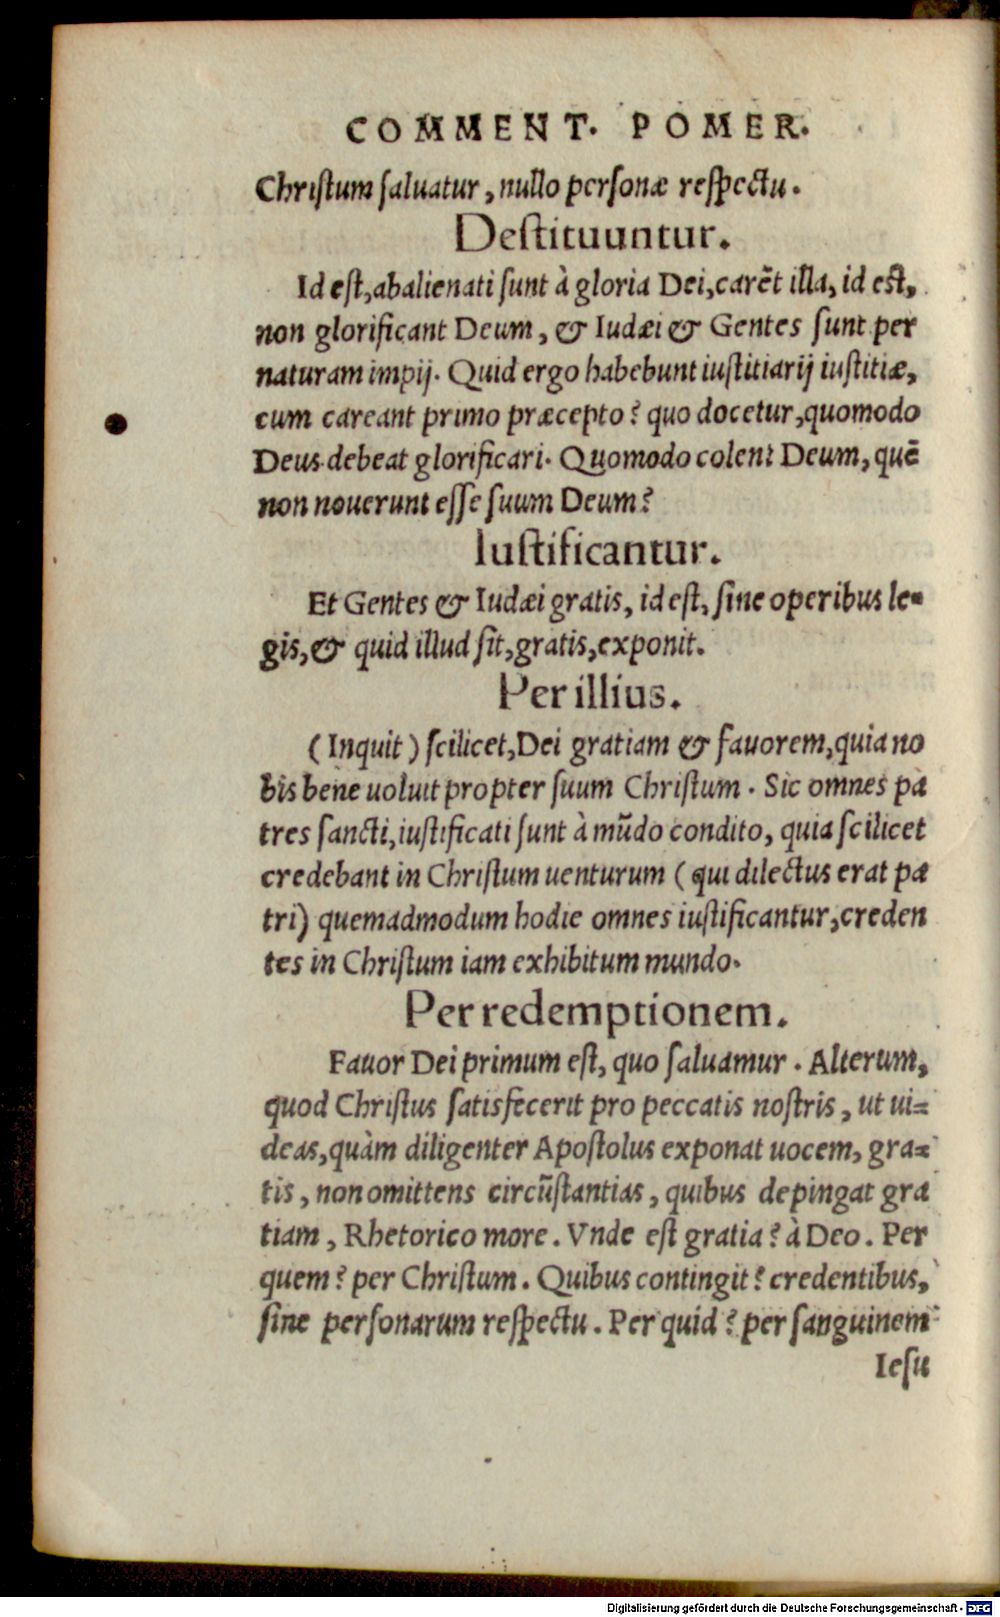 COMMENT. POMER.
Christum saluatur, nullo personæ respectu.
Destituuntur.
Id est, abalienati sunt à gloria Dei, carẽt illa, id est,
non glorificant Deum, & Iudæi & Gentes sunt per
naturam impij. Quid ergo habebunt iustitiarij iustitiæ,
cum careant primo præcepto? quo docetur, quomodo
Deus debeat glorificari. Quomodo colent Deum, quẽ
non nouerunt esse suum Deum?
Iustificantur.
Et Gentes & Iudæi gratis, id est, sine operibus le-
gis, & quid illud sit, gratis, exponit.
Per illius.
(Inquit) scilicet, Dei gratiam & fauorem, quia no
bis bene uoluit propter suum Christum. Sic omnes pa
tres sancti, iustificati sunt à mũdo condito, quia scilicet
credebant in Christum uenturum (qui dilectus erat pa
tri) quemadmodum hodie omnes iustificantur, creden
tes in Christum iam exhibitum mundo.
Per redemptionem.
Fauor Dei primum est, quo saluamur. Alterum,
quod Christus satisfecerit pro peccatis nostris, ut ui=
deas, quàm diligenter Apostolus exponat uocem, gra=
tis, non omittens circũstantias, quibus depingat gra
tiam, Rhetorico more. Vnde est gratia? à Deo. Per
quem? per Christum. Quibus contingit? credentibus,
sine personarum respectu. Per quid? per sanguinem
Iesu
Digitalisierung gefördert durch die Deutsche Forschungsgemeinschaft - DFG